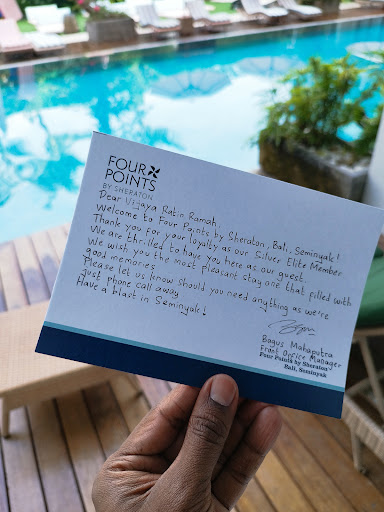 FOUR
POINTS
BY SHERATON
Dear Vijaya Ratin Ramah,
Welcome to Four Points by Sheraton, Bali, Seminyak!
Thank you for your loyalty as our Silver Elite Member
We are thrilled to have you here as our guest.
We wish you the most pleasant stay one that filled with
good memories
Please let us know should you need anything as we're
just phone call away
Have a blast in Seminyak!
Bagus Mahaputra
Front Office Manager
Four Points by Sheraton
Bali, Seminyak